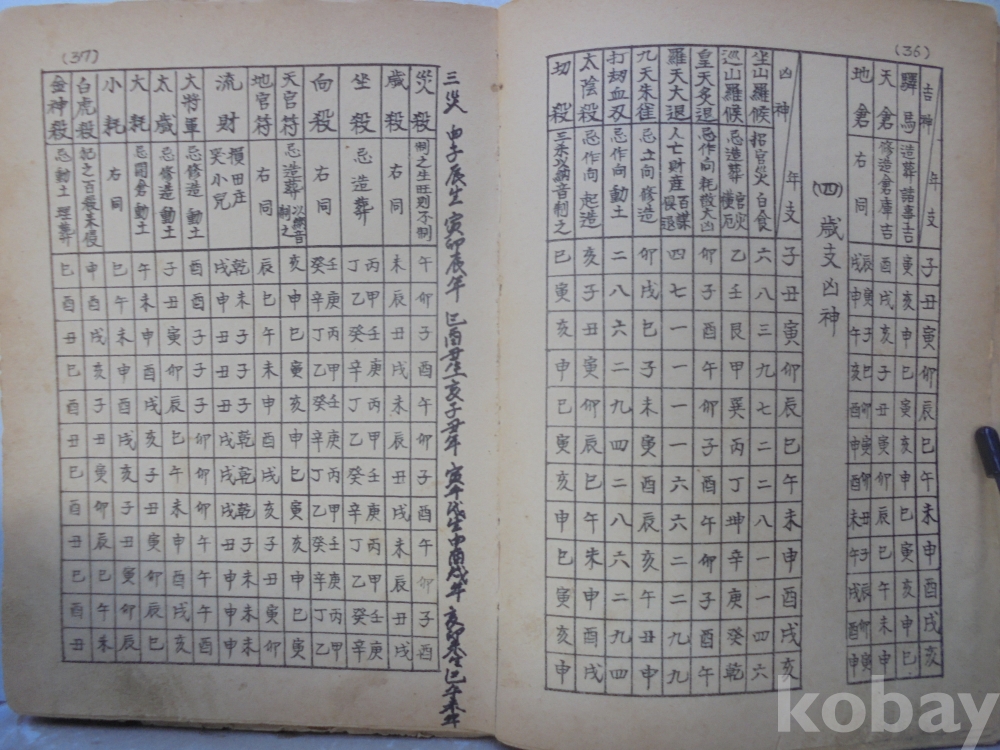 (36)
吉神 年支 子 丑 寅 卯 辰 巳 午 未 申 酉 戌 亥
驛馬 造葬諸事吉 寅 亥 申 巳 寅 亥 申 巳 寅 亥 申 巳
天倉 修造倉庫吉 酉 戌 亥 子 丑 寅 卯 辰 巳 午 未 申
地倉 右同 辰戌 寅申 子午 巳亥 卯酉 寅申 卯酉 丑未 子午 辰戌 卯酉 寅申
(四) 歲支凶神
凶神 年支 子 丑 寅 卯 辰 巳 午 未 申 酉 戌 亥
坐山羅候 招官災白食 六 八 三 九 七 二 二 八 一 一 四 六
巡山羅候 忌造葬官災 乙 壬 艮 甲 巽 丙 丁 坤 辛 庚 癸 乾
皇天炙退 忌作向耗散大凶 卯 子 酉 午 卯 子 酉 午 卯 子 酉 午
羅天大退 人亡財産百謀俱退 四 七 一 一 一 一 六 六 二 二 九 九
九天朱雀 忌立向修造 卯 戌 巳 子 未 寅 酉 辰 亥 午 丑 申
打刼血刃 忌作向動土 二 八 六 二 九 四 二 八 六 二 九 四
太陰殺 忌作向起造 亥 子 丑 寅 卯 辰 巳 午 未 申 酉 戌
切殺 三杀以納音制之 巳 寅 亥 申 巳 寅 亥 申 巳 寅 亥 申
(37)
三災 申子辰生 寅卯辰年 巳酉丑生 亥子丑年 寅午戌生 申酉戌年 亥卯未生 巳午未年
災殺 制之生旺則不制 午 卯 子 酉 午 卯 子 酉 午 卯 子 酉
歲殺 右同 未 辰 丑 戌 未 辰 丑 戌 未 辰 丑 戌
坐殺 忌造葬 丙丁 甲乙 壬癸 庚辛 丙丁 甲乙 壬癸 庚辛 丙丁 甲乙 壬癸 庚辛
向殺 右同 壬癸 庚辛 丙丁 甲乙 壬癸 庚辛 丙丁 甲乙 壬癸 庚辛 丙丁 甲乙
天官符 忌造葬以納音制之 亥 申 巳 寅 亥 申 巳 寅 亥 申 巳 寅
地官符 右同 辰 巳 午 未 申 酉 戌 亥 子 丑 寅 卯
流財 損田庄 乾戌 未申 子丑 子丑 子丑 乾戌 乾戌 乾戌 子丑 未申 未申 未申
大將軍 忌修造動土 酉 酉 子 子 子 卯 卯 卯 午 午 午 酉
太歲 忌修造動土 子 丑 寅 卯 辰 巳 午 未 申 酉 戌 亥
大耗 忌開倉動土 午 未 申 酉 戌 亥 子 丑 寅 卯 辰 巳
小耗 右同 巳 午 未 申 酉 戌 亥 子 丑 寅 卯 辰
白虎殺 招之百殺來侵 申 酉 戌 亥 子 丑 寅 卯 辰 巳 午 未
金神殺 忌動土埋葬 巳 酉 丑 巳 酉 丑 巳 酉 丑 巳 酉 丑
kobay